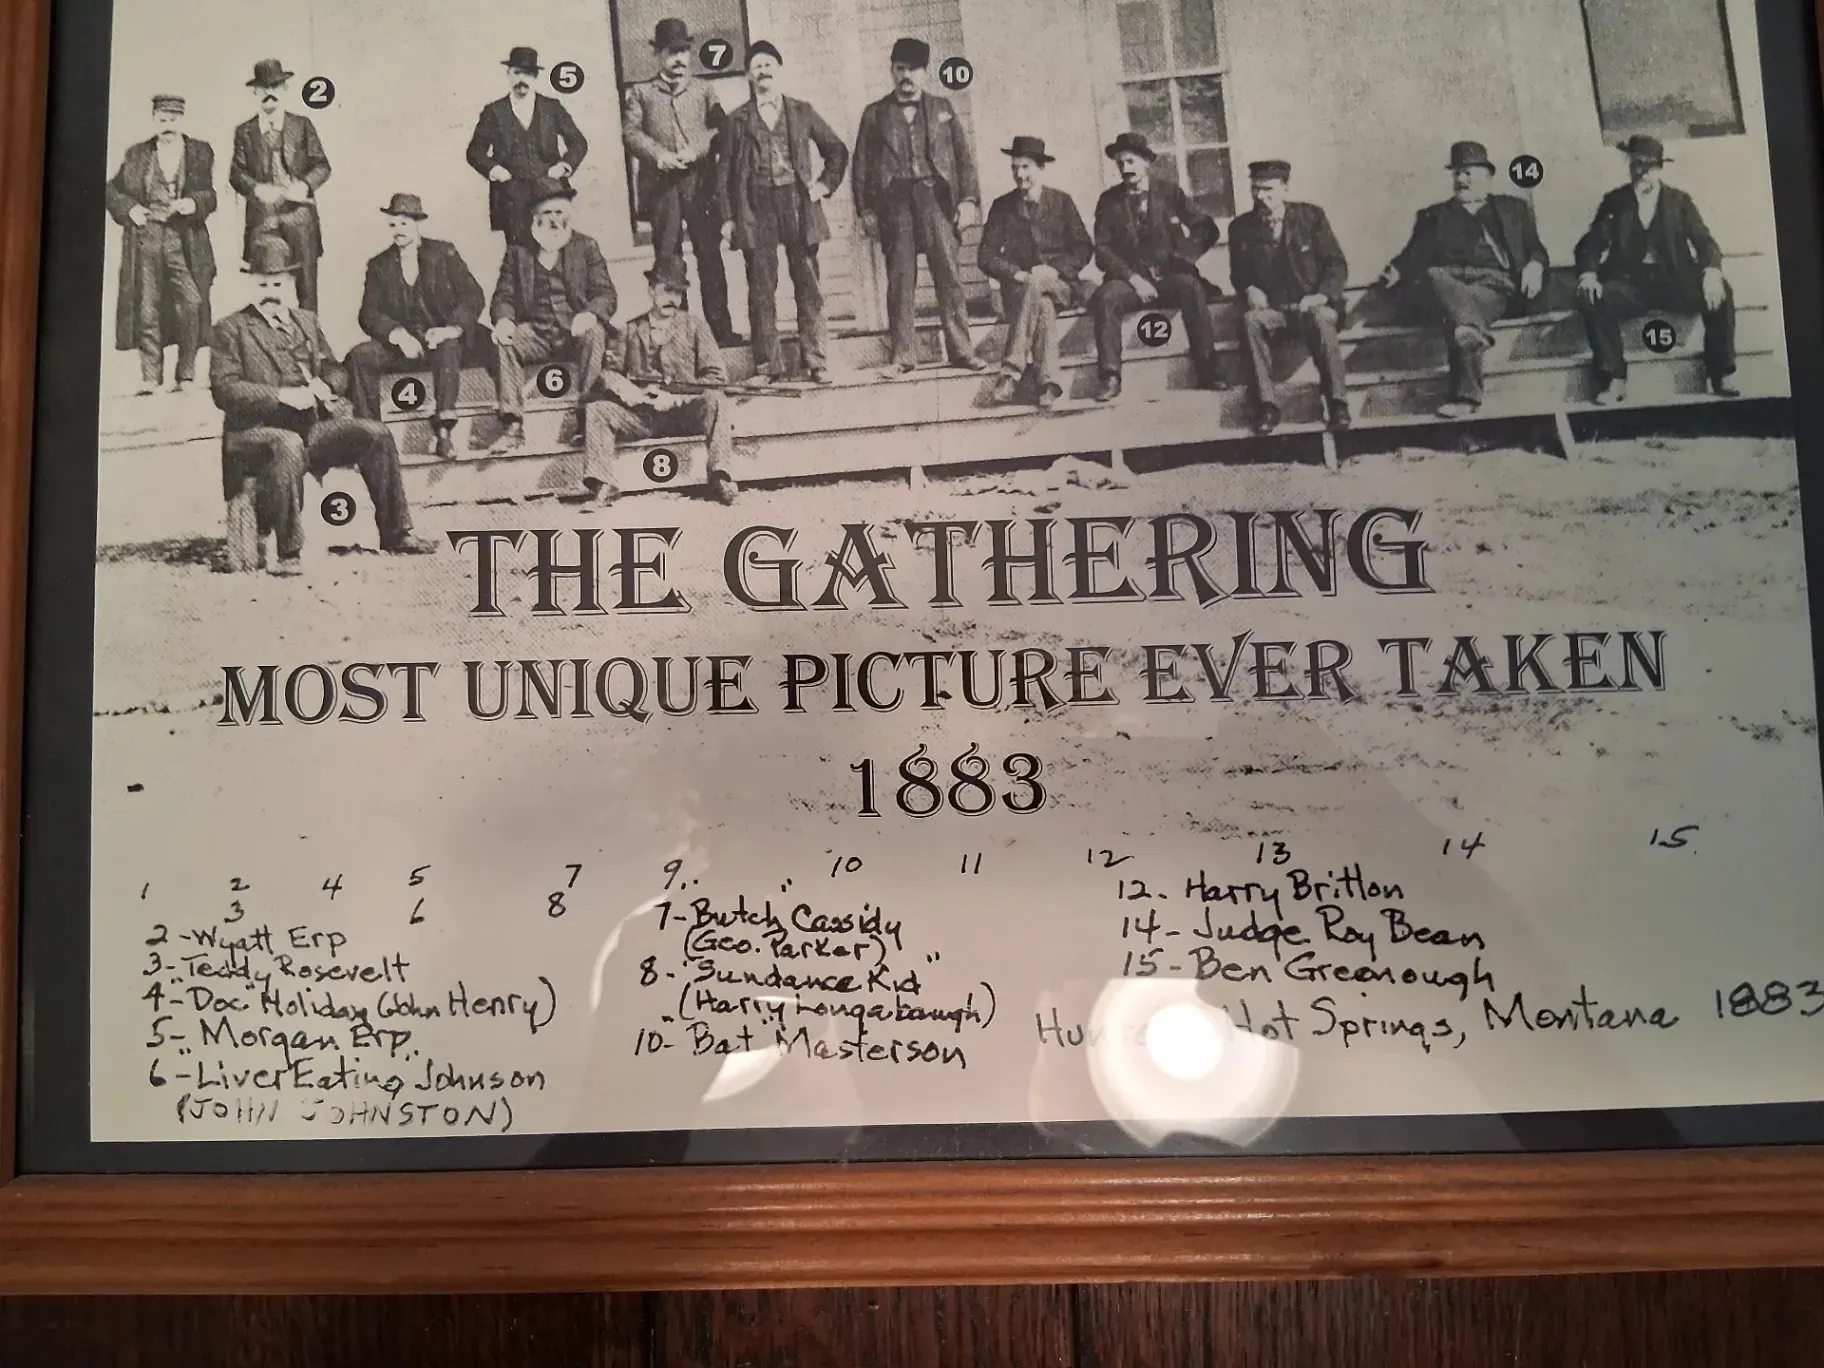 2
5
7
10
14
12
15
4
6
8
3
THE GATHERING
MOST UNIQUE PICTURE EVER TAKEN
1883
1 2 4 5 7 9 10 11 12 13 14 15
3 6 8
2-Wyatt Erp
3-Teddy Rosevelt
4-"Doc" Holiday (John Henry)
5- Morgan Erp
6-"LiverEating" Johnson
(JOHN JOHNSTON)
7-"Butch Cassidy"
(Geo. Parker)
8-"Sundance Kid"
(Harry Longabaugh)
10- "Bat" Masterson
12- Harry Britton
14- Judge Roy Bean
15- Ben Greenough
Hot Springs, Montana 1883